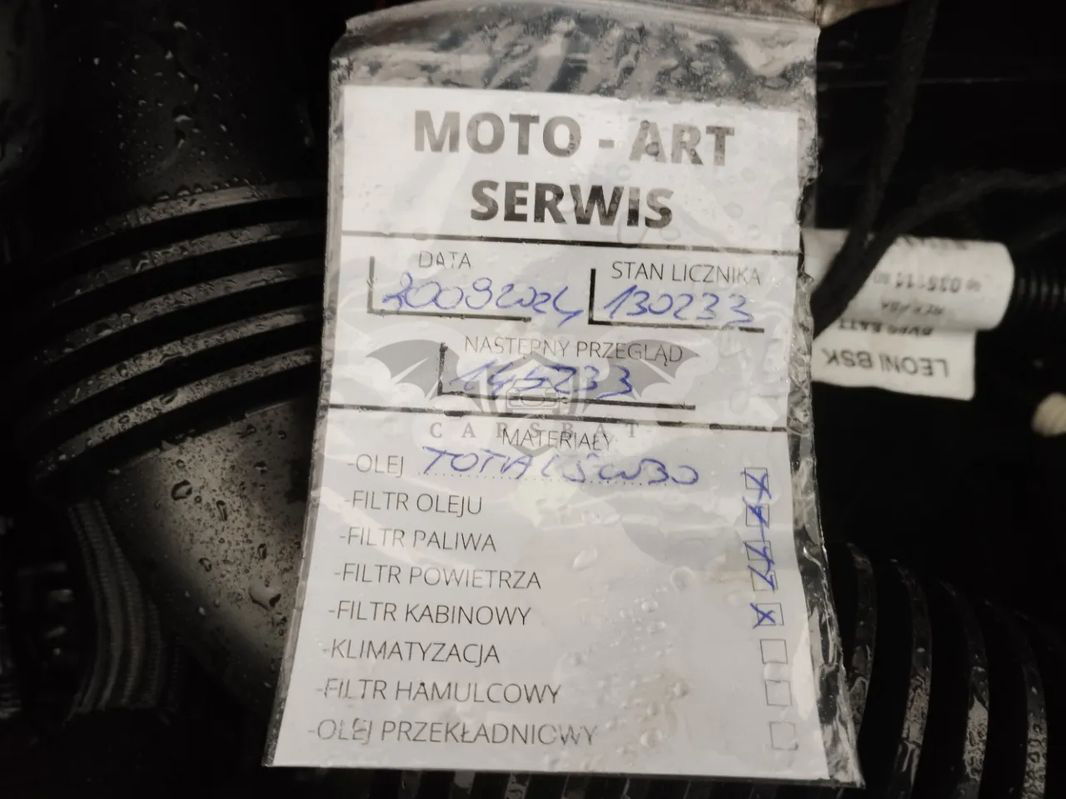 MOTO - ART
SERWIS
DATA
STAN LICZNIKA
20092024
130233
NASTĘPNY PRZEGLĄD
145233
CARSBAT
MATERIAŁY
-OLEJ TOTAL 5W30
-FILTR OLEJU
-FILTR PALIWA
-FILTR POWIETRZA
-FILTR KABINOWY
-KLIMATYZACJA
-FILTR HAMULCOWY
-OLEJ PRZEKŁADNIOWY
LEONI BSK